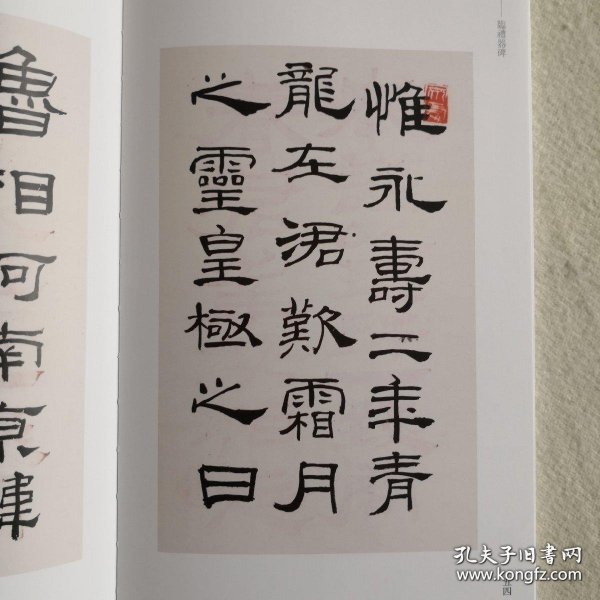 臨禮器碑
惟永壽二年青
龍在涒歎霜月
之靈皇極之日
魯相河南京韓
四
孔夫子旧书网
www.kongfz.com